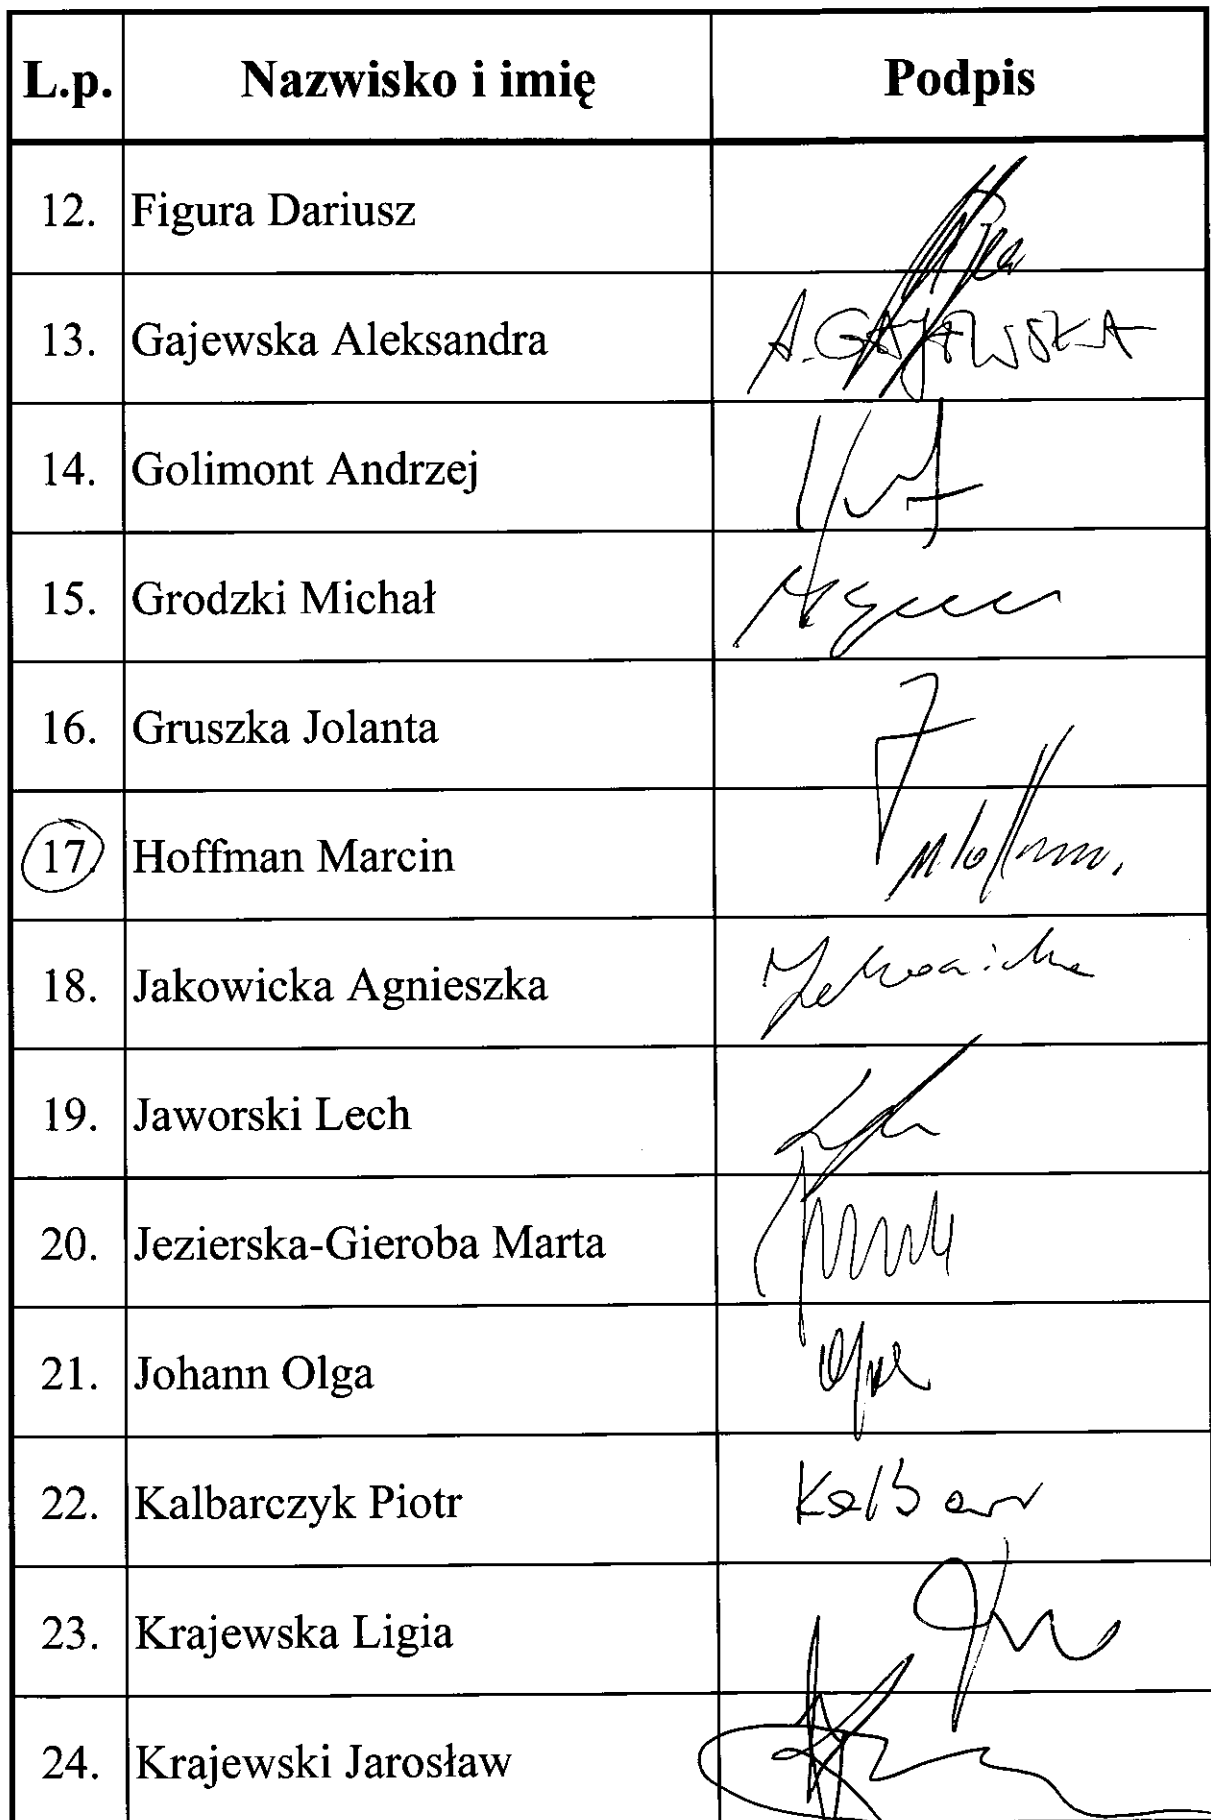 L.p. Nazwisko i imię Podpis
12. Figura Dariusz
13. Gajewska Aleksandra A. GAJEWSKA
14. Golimont Andrzej
15. Grodzki Michał
16. Gruszka Jolanta
17. Hoffman Marcin
18. Jakowicka Agnieszka Jakowicka
19. Jaworski Lech
20. Jezierska-Gieroba Marta
21. Johann Olga
22. Kalbarczyk Piotr
23. Krajewska Ligia
24. Krajewski Jarosław